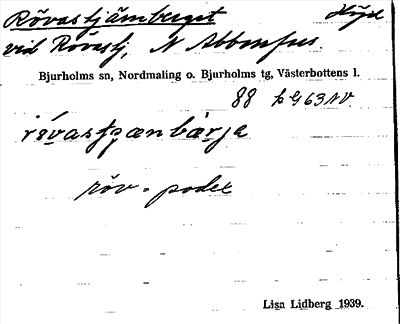 Rövastjämberget Höjd
vid Rövastj, N Abborrfors.
Bjurholms sn, Nordmaling o. Bjurholms tg, Västerbottens l.
88 63 NV
röv = podex
Lisa Lidberg 1939.